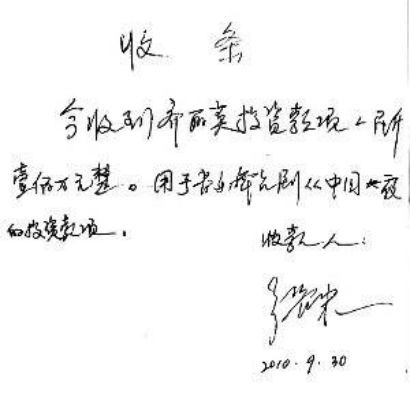 收 条
今收到齐丽英投资款项人民币
壹佰万元整。用于音乐舞台剧《中国之夜
的投资款项。
收款人:
2010.9.30